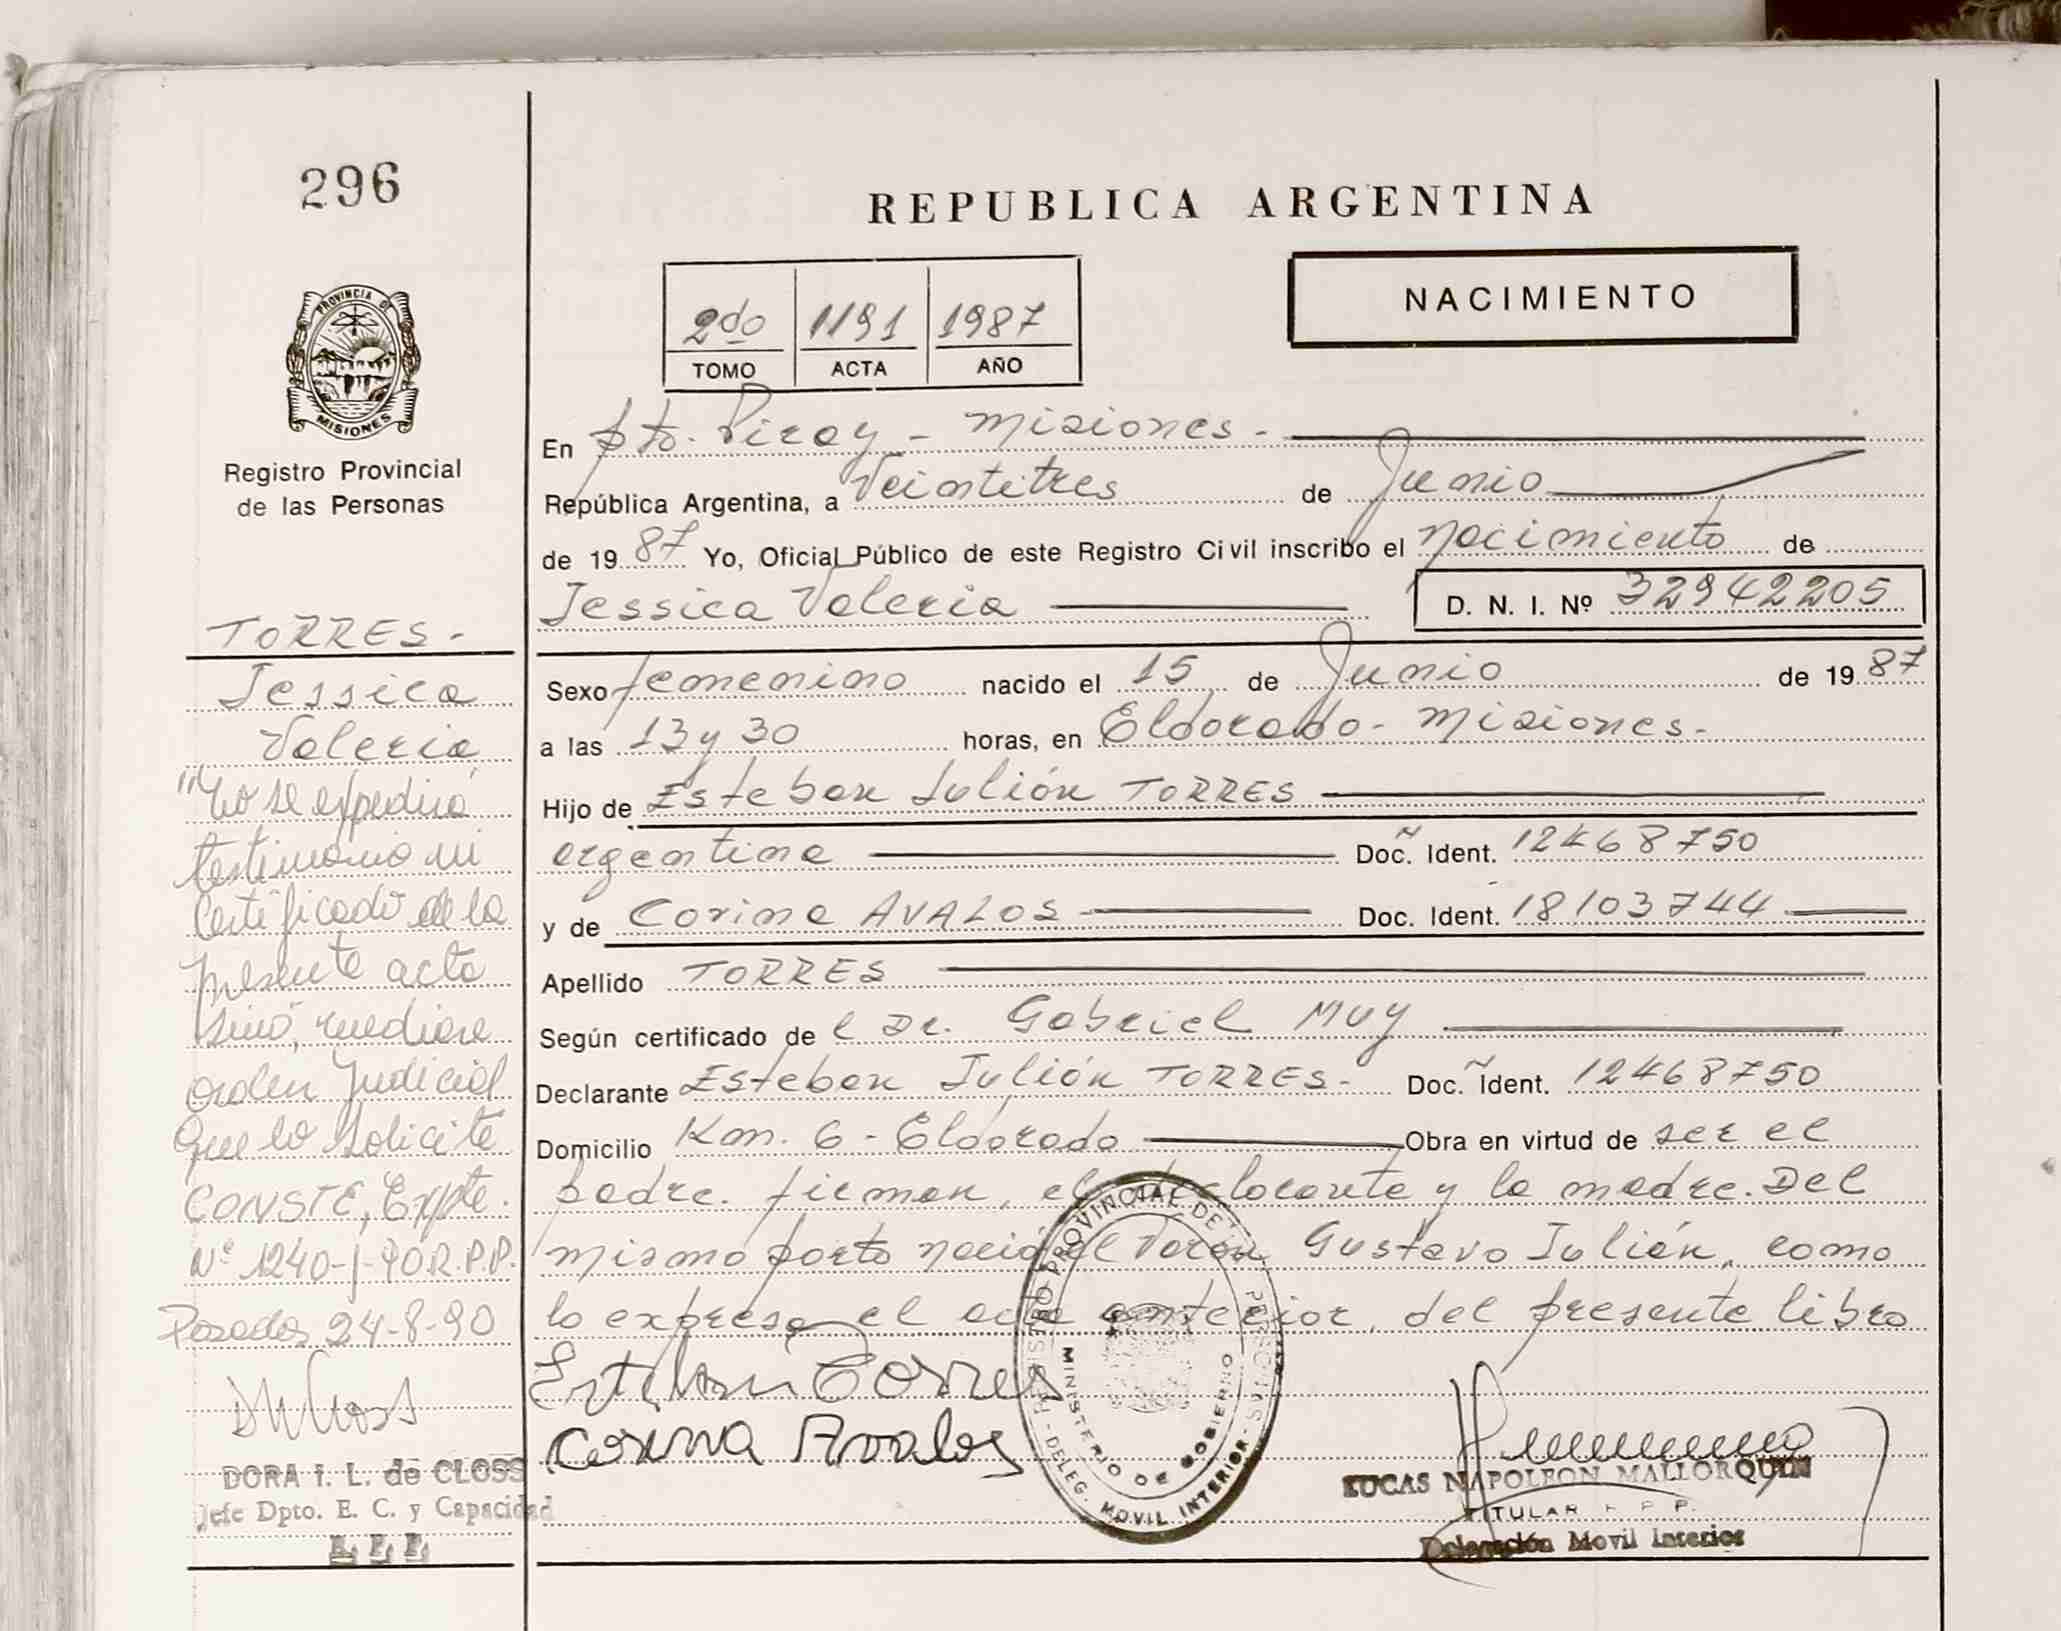 296
REPUBLICA ARGENTINA
2do 1191 1987
TOMO ACTA AÑO
NACIMIENTO
PROVINCIA D
MISIONES
Registro Provincial
de las Personas
TORRES -
Jessica
Valeria
"No se expedirá
testimonio ni
Certificado de la
presente acta
sinó, mediare
orden Judicial
que lo solicite
CONSTE, Expte.
Nº 1240-J-90 R.P.P.
Posadas 24-8-90
DORA I. L. de CLOSS
Jefe Dpto. E. C. y Capacidad
En pto. Piray - Misiones -
República Argentina, a Veintitres de Junio
de 19 87 Yo, Oficial Público de este Registro Civil inscribo el nacimiento de
Jessica Valeria D. N. I. Nº 32942205
Sexo femenino nacido el 15 de Junio de 19 87
a las 13 y 30 horas, en Eldorado - Misiones -
Hijo de Esteban Julián TORRES
argentina Doc. Ident. 12468750
y de Corina AVALOS Doc. Ident. 18103744
Apellido TORRES
Según certificado de l Dr. Gabriel Muy
Declarante Esteban Julián TORRES - Doc. Ident. 12468750
Domicilio Km. 6 - Eldorado Obra en virtud de ser el
padre. firman, el declarante y la madre. Del
mismo parto nació el varón Gustavo Julián, como
lo expresa el acta anterior, del presente libro
Esteban Torres
Corina Avalos
REGISTRO PROVINCIAL DE LAS PERSONAS
- DELEG. MOVIL INTERIOR -
MINISTERIO DE GOBIERNO
LUCAS NAPOLEON MALLORQUIN
TITULAR R. P. P.
Delegación Movil Interior